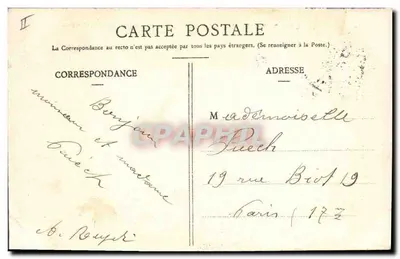 II
CARTE POSTALE
La Correspondance au recto n'est pas acceptée par tous les pays étrangers. (Se renseigner à la Poste.)
CORRESPONDANCE
Bonjour
monsieur et madame
Puech
ADRESSE
Mademoiselle
Puech
19 rue Biot 19
Paris (17
CPAPHIL